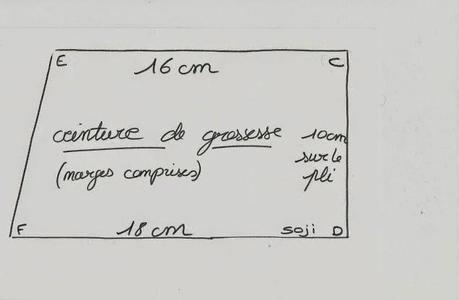 E 16 cm C
ceinture de grossesse 10cm
sur le
(marges comprises) pli
F 18 cm soji D